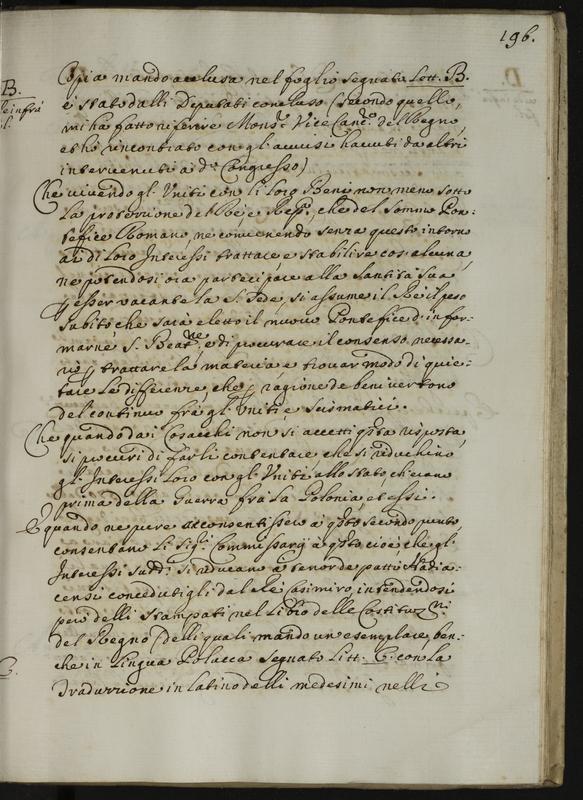 196.
B.
Copia mando acclusa nel foglio segnato Lett. B.
è stato dalli Deputati concluso (secondo quello,
mi ha fatto riferire Mons.r Vice Canc.o del Regno,
et hò rincontrato con gl'avvisi havuti da altri
intervenuti a d.o Congresso)
Che vivendo gl'Uniti con li loro Beni non meno sotto
la protezione del Rè e Rep.ca, che del Sommo Pon:
tefice Romano, ne convenendo senza questo intorno
ai di loro Interessi trattare, e stabilire cosa alcuna,
ne potendosi ora participare alla Santità Sua,
p esser vacante la S. Sede, si assume il Rè il peso
subito che sarà eletto il nuovo Pontefice d'infor:
marne S. Beat.ne, e di procurare il consenso necessa:
rio p trattare la materia, e trovar modo di quie:
tare le differenze, che p ragione de beni vertono
del continuo frà gl'Uniti e Scismatici.
Che quando dai Cosacchi non si accetti q.sta risposta,
si procuri di farli contentare che si riduchino
gl'Interessi loro con gl'Uniti allo stato, ch'erano
prima della Guerra frà la Polonia, et essi.
E quando ne pure acconsentissero à q.sto secondo punto,
consentano li Sig.ri Commissarij à q.sto cioè, che gl'
Interessi sudd.i si riducano à tenor de patti Hadia:
censi conceduti gli dal Rè Casimiro, intendendosi
però delli stampati nel Libro delle Costituz.ni
del Regno (delli quali mando un esemplare, ben:
che in Lingua Polacca segnato Litt. C. con la
C.
Traduzzione in latino delli medesimi nelli